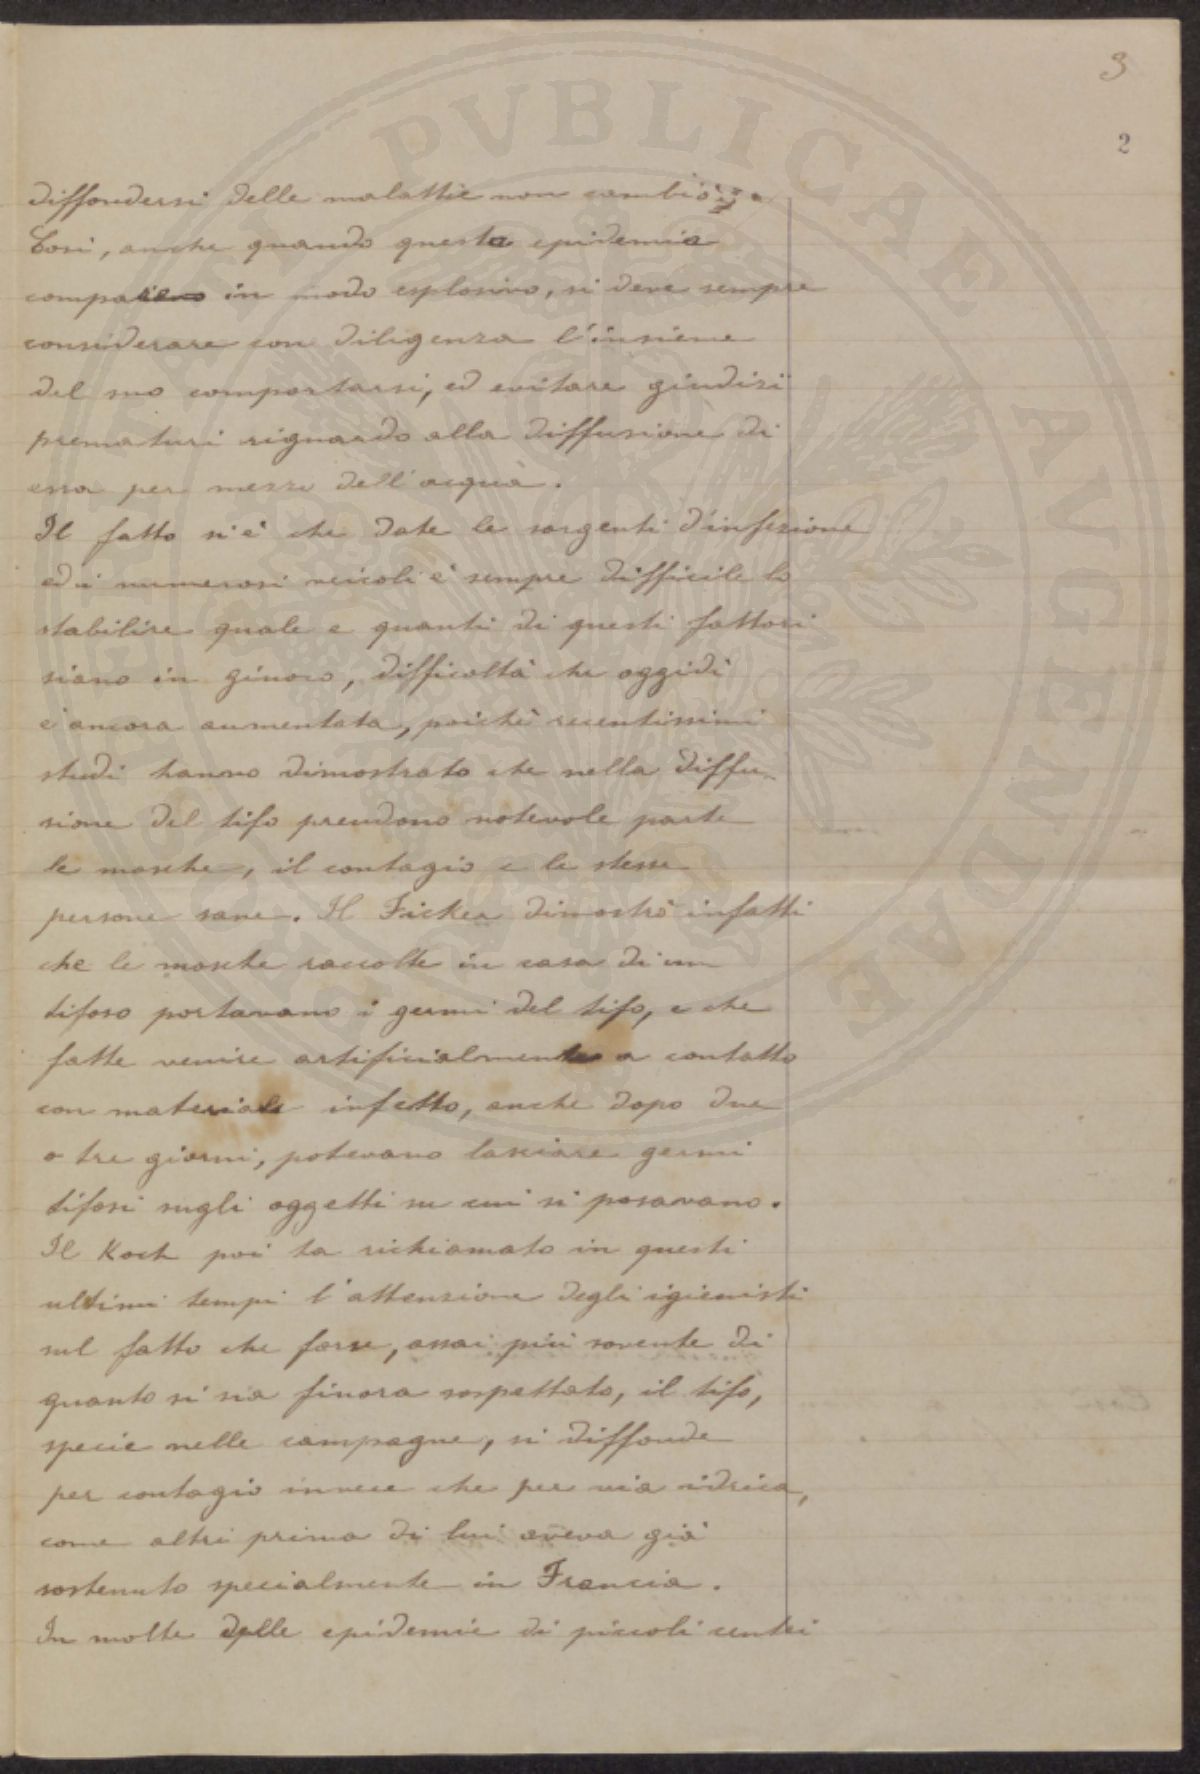 3
2
diffondersi delle malattie non cambiò.
Così, anche quando questa epidemia
compaiono in modo esplosivo, si deve sempre
considerare con diligenza l'insieme
del suo comportarsi, ed evitare giudizi
prematuri riguardo alla diffusione di
essa per mezzo dell'acqua.
Il fatto si è che date le sorgenti d'infezione
ed i numerosi veicoli è sempre difficile lo
stabilire quale e quanti di questi fattori
siano in giuoco, difficoltà che oggidì
è ancora aumentata, poichè recentissimi
studi hanno dimostrato che nella diffu-
sione del tifo prendono notevole parte
le mosche, il contagio e le stesse
persone sane. Il Ficker dimostrò infatti
che le mosche raccolte in casa di un
tifoso portavano i germi del tifo, e che
fatte venire artificialmente a contatto
con materiale infetto, anche dopo due
o tre giorni, potevano lasciare germi
tifosi sugli oggetti su cui si posavano.
Il Koch poi ha richiamato in questi
ultimi tempi l'attenzione degli igienisti
sul fatto che forse, assai più sovente di
quanto si sia finora sospettato, il tifo,
specie nelle campagne, si diffonde
per contagio invece che per via idrica,
come altri prima di lui aveva già
sostenuto specialmente in Francia.
In molte delle epidemie di piccoli centri
PVBLICAE AVGENDAE